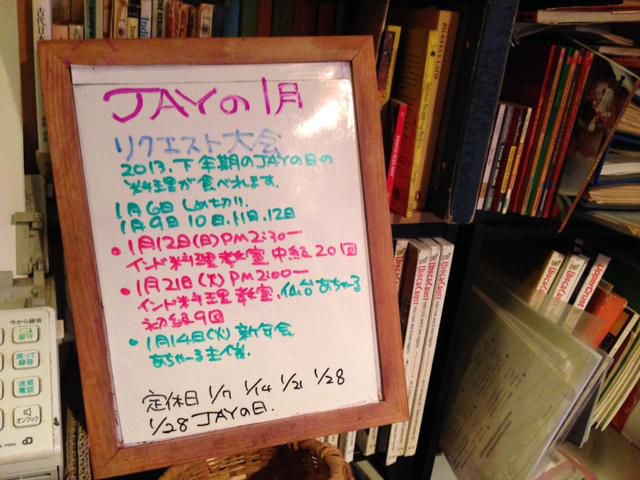 JAYの1月
リクエスト大会
2013.下半期のJAYの日の
料理が食べれます.
1月6日しめ切り!.
1月9日10日.11日.12日
•1月12日(日)PM2:30ー
インド料理教室 中級20回
•1月21日(火)PM2:00ー
インド料理教室.仙台あちゃーる
初級9回
•1月14日(火)新年会
あちゃーる主催.
定休日 1/7 1/14 1/21 1/28
1/28 JAYの日.
今から録音
留守
戻って
録音
迷惑
電話
オンフック
UpperCrust